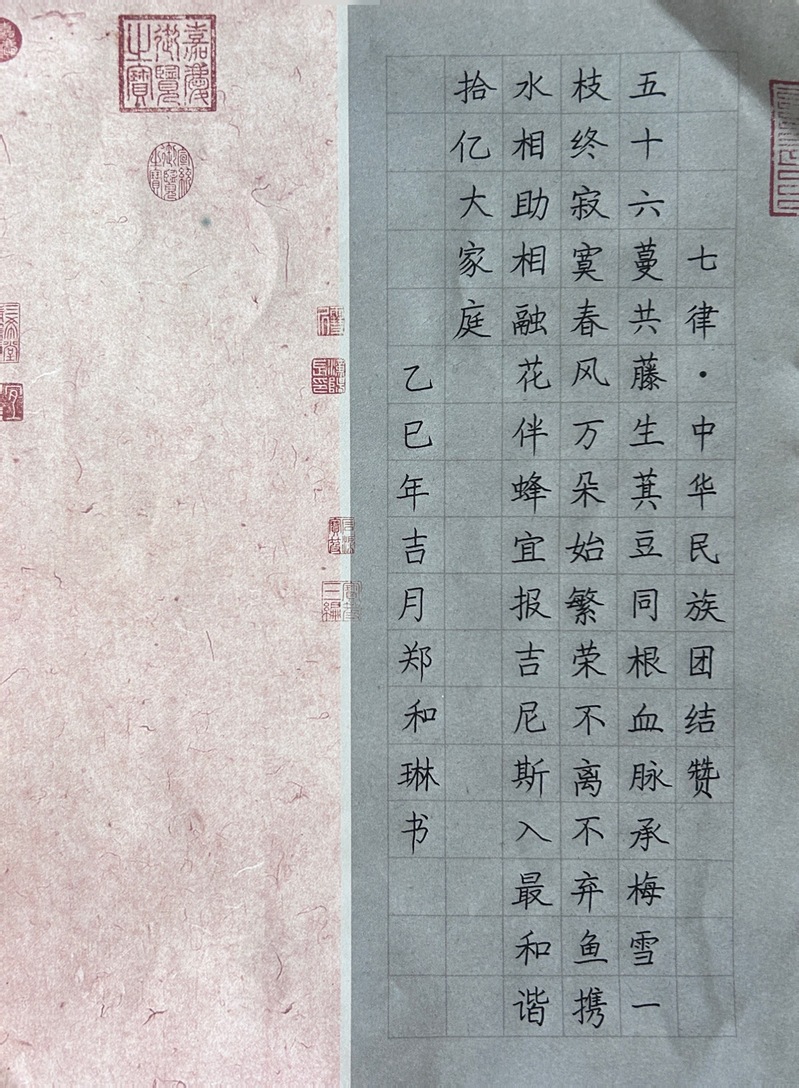 七律·中华民族团结赞
五十六蔓共藤生萁豆同根血脉承梅雪一
枝终寂寞春风万朵始繁荣不离不弃鱼携
水相助相融花伴蜂宜报吉尼斯入最和谐
拾亿大家庭
乙巳年吉月郑和琳书
嘉庆御览之宝
宣统御览之宝